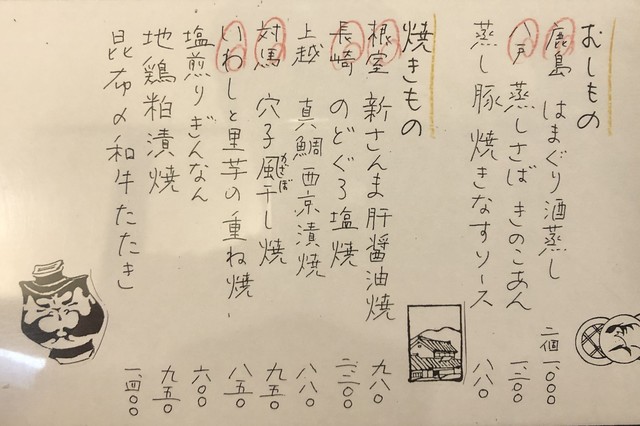 おしもの
鹿島 はまぐり酒蒸し 二個一、〇〇〇
八戸 蒸しさば きのこあん 一、二〇〇
蒸し豚 焼きなすソース 八八〇
焼きもの
根室 新さんま肝醤油焼 九八〇
長崎 のどぐろ塩焼 二、二〇〇
上越 真鯛西京漬焼 八八〇
対馬 穴子風干し焼 九五〇
かざぼ
いわしと里芋の重ね焼 八五〇
塩煎りぎんなん 六〇〇
地鶏粕漬焼 九五〇
昆布〆和牛たたき 一、四〇〇